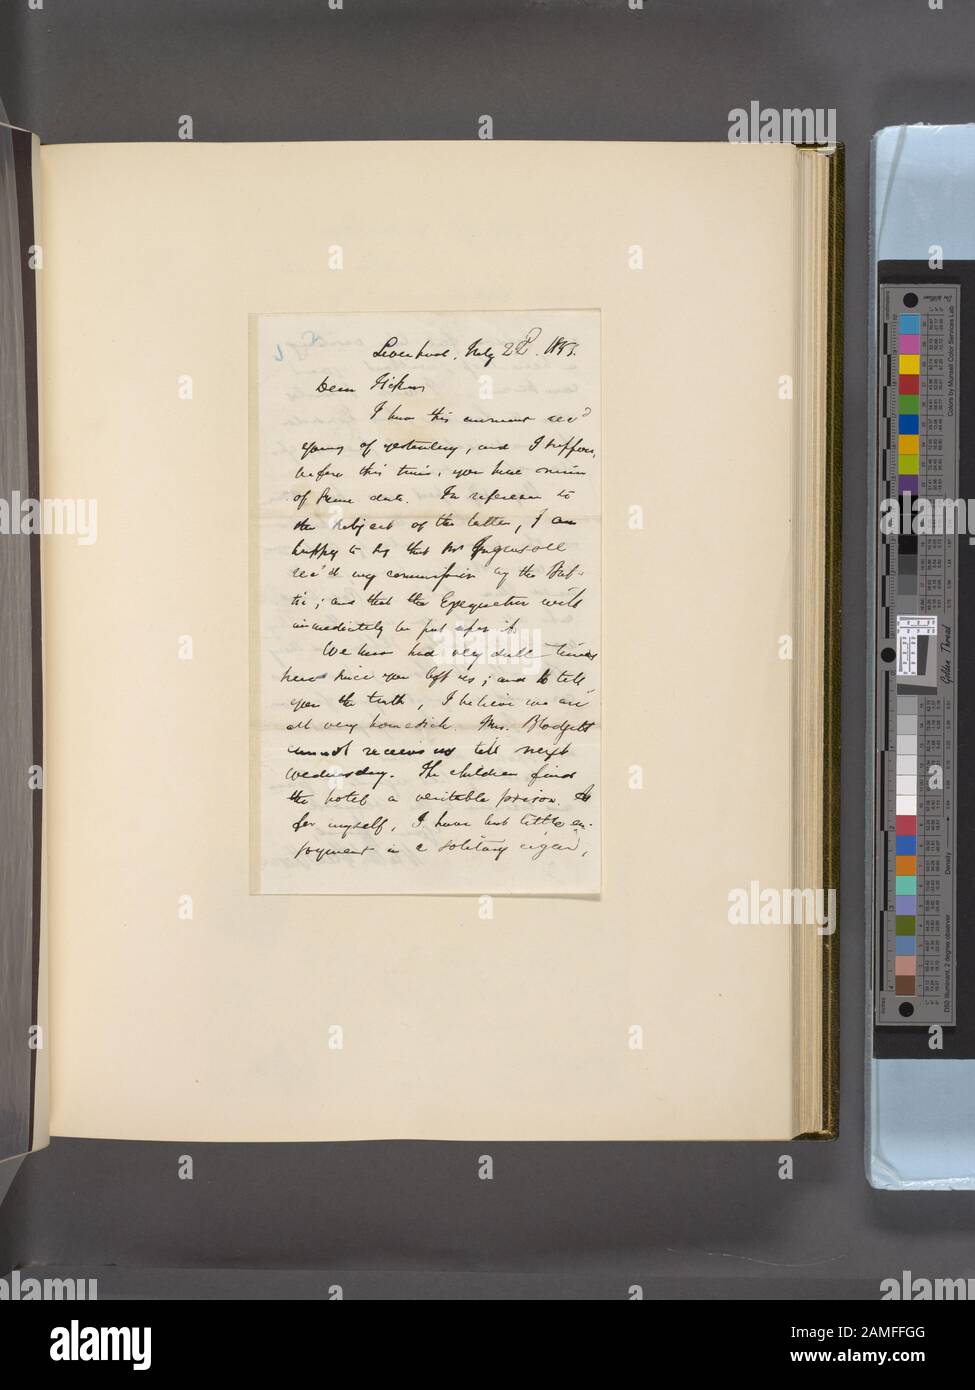 Liverpool, July 22d. 1853.
Dear Ticknor
I have this moment rec'd
yours of yesterday, and I suppose,
before this time, you have mine
of same date. In reference to
the subject of the letter, I am
happy to say that Mr Ingersoll
rec'd my commission by the Bal-
tic; and that the Exequatur will
immediately be put upon it.
We have had very dull times
here since you left us; and to tell
you the truth, I believe we are
all very homesick. Mrs. Blodgett
cannot receive us till next
Wednesday. The children find
the hotel a veritable prison. As
for myself, I have but little en-
joyment in a solitary cigar,
alamy
Image ID: 2AMFFGG
www.alamy.com
Golden Thread
Colors by Munsell Color Services Lab
D50 Illuminant, 2 degree observer
Density